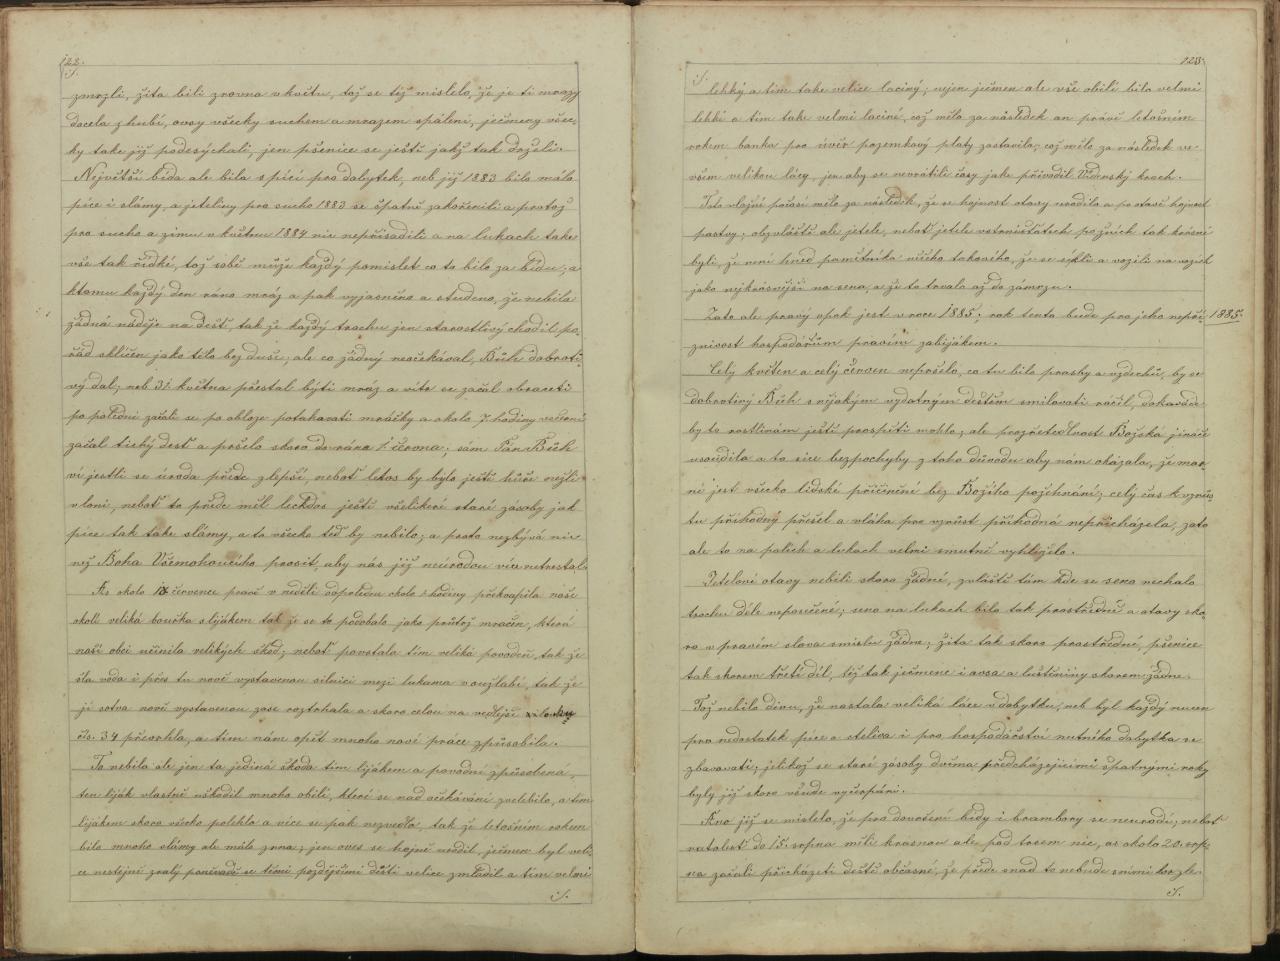 122.
zmrzli, žita bili zrovna v květu, tož se též mislelo, že je ti mrazy
docela zhubí, ovsy všecky suchem a mrazem spáleni, ječmeny všec-
ky take již podesýchali, jen pšenice se ještě jakž tak drželi.
Největší bída ale bila s pící pro dobytek, neb již 1883 bilo málo
píce i slámy, a jeteliny pro sucho 1883 se špatně zakořenili a protož
pro sucho a zimu v květnu 1884 nic nepřisadili a na lukach take
vše tak řídké, tož sobě může každý pomislet co to bilo za bídu; a
ktomu každý den ráno mráz a pak vyjasněno a studeno, že nebila
žádná náděje na dešť, tak že každý trochu jen starostlivý chodil po-
řád sklíčen jako tělo bez duše; ale co žádný neočekával, Bůh dobroti-
vý dal; neb 31. května přestal býti mráz a vítr se začal obraceti
po poledni začali se po obloze potahovati mráčky a okolo 7 hodiny večerní
začal tichý dešť a pršelo skoro do rána 1. června; sám Pán Bůh
ví jestli se úroda přeic zlepší, neboť letos by bylo ještě hůře nežli
vloni, neboť to přede měl leckdos ještě všelikeré staré zásoby jak
píce tak take slámy, a to všecko teď by nebilo; a proto nezbývá nic
než Boha Všemohoucího prosit, aby nás již neúrodou více netrestal.
As okolo července pravě v neděli odpoledne okolo hodiny překvapila naše
okolí veliká bouřka s lijákem tak že se to podobalo jako průtrž mračn, která
naší obci učinila velikých škod; neboť povstala tím veliká povodeň, tak že
šla voda i přes tu nově vystavenou silnici mezi lukama v oužlabí, tak že
ji sotva nově vystavenou zase roztrhala a skoro celou na vedlejší
čís. 34 převrhla, a tím nám opět mnoho nové práce způsobila.
To nebila ale jen ta jediná škoda tím lijákem a povodní způsobená,
ten liják vlastně uškodil mnoho obilí, které se nad očekávání zvelebilo, a tím
lijákem skoro všecko polehlo a více se pak nezvedlo, tak že letošním rokem
bilo mnoho slámy ale málo zrna; jen oves se hojně urodil, ječmen byl veli-
ce nestejně zralý poněvadž se těmi pozdějšími dešti velice zmladil a tím velmi
123.
lehký a tím take velice laciný; nejen ječmen ale vše obilí bilo velmi
lehké a tím take velmi laciné, což mělo za následek an právě letošním
rokem banka pro úvěr pozemkový platy zastavila; což mělo za následek ve
všem velikou lácy, jen aby se nevrátili časy jake přivodil Vídenský krach.
Toto vlažší počasí mělo za následek, že se hojnost otavy urodila a po otavě hojnost
pastvy; obzvláště ale jetele, neboť jetele v strništatech pozdních tak krásné
byli, že není hned pamětníka něčeho takového, že se sekli a vozili na vozích
jako nejkrásnější na seno, a že to trvalo až do zámrzu.
Zato ale pravý opak jest v roce 1885; rok tento bude pro jeho nepří- 1885.
znivost hospodářům pravím zabijákem.
Celý květen a celý červen nepršelo, co tu bilo prosby a vzdechů, by se
dobrotivý Bůh s nějakým vydatným deštěm smilovati ráčil, dokavád
by to rostlinám ještě prospěti mohlo; ale prozřetedlnost Božská jináče
usoudila a to sice bezpochyby z toho důvodu aby nám okázala, že mar-
né jest všecko lidské přičinění bez Božího požehnání; celý čas k vzrůs-
tu příhodný přešel a vláha pro vzrůst příhodná nepřicházela, zato
ale to na polích a lukach velmi smutně vyhlíželo.
Jetelové otavy nebili skoro žádné, zvláště tám kde se seno nechalo
trochu déle neposečené; sena na lukach bilo tak prostředně a otavy sko-
ro v pravím slova smislu žádne; žita tak skoro prostředně, pšenice
tak skorem třetí díl, též tak ječmene i ovsa a luštěniny skorem žádne.
Tož nebilo divu, že nastala veliká láce v dobytku, neb byl každý nucen
pro nedostatek píce a steliva i pro hospodářství nutného dobytka se
zbavovati; jelikož se staré zásoby dvěma předcházejícími špatnými roky
byly již skoro všude vyčerpáni.
Ano již se mislelo, že pro dovršení bídy i brambory se neurodí; neboť
natolesť do 15. srpna měli krásnou ale pod trsem nic, as okolo 20. srp-
na začali přicházeti deště občasné, že přede snad to nebude s nimi tak zle.